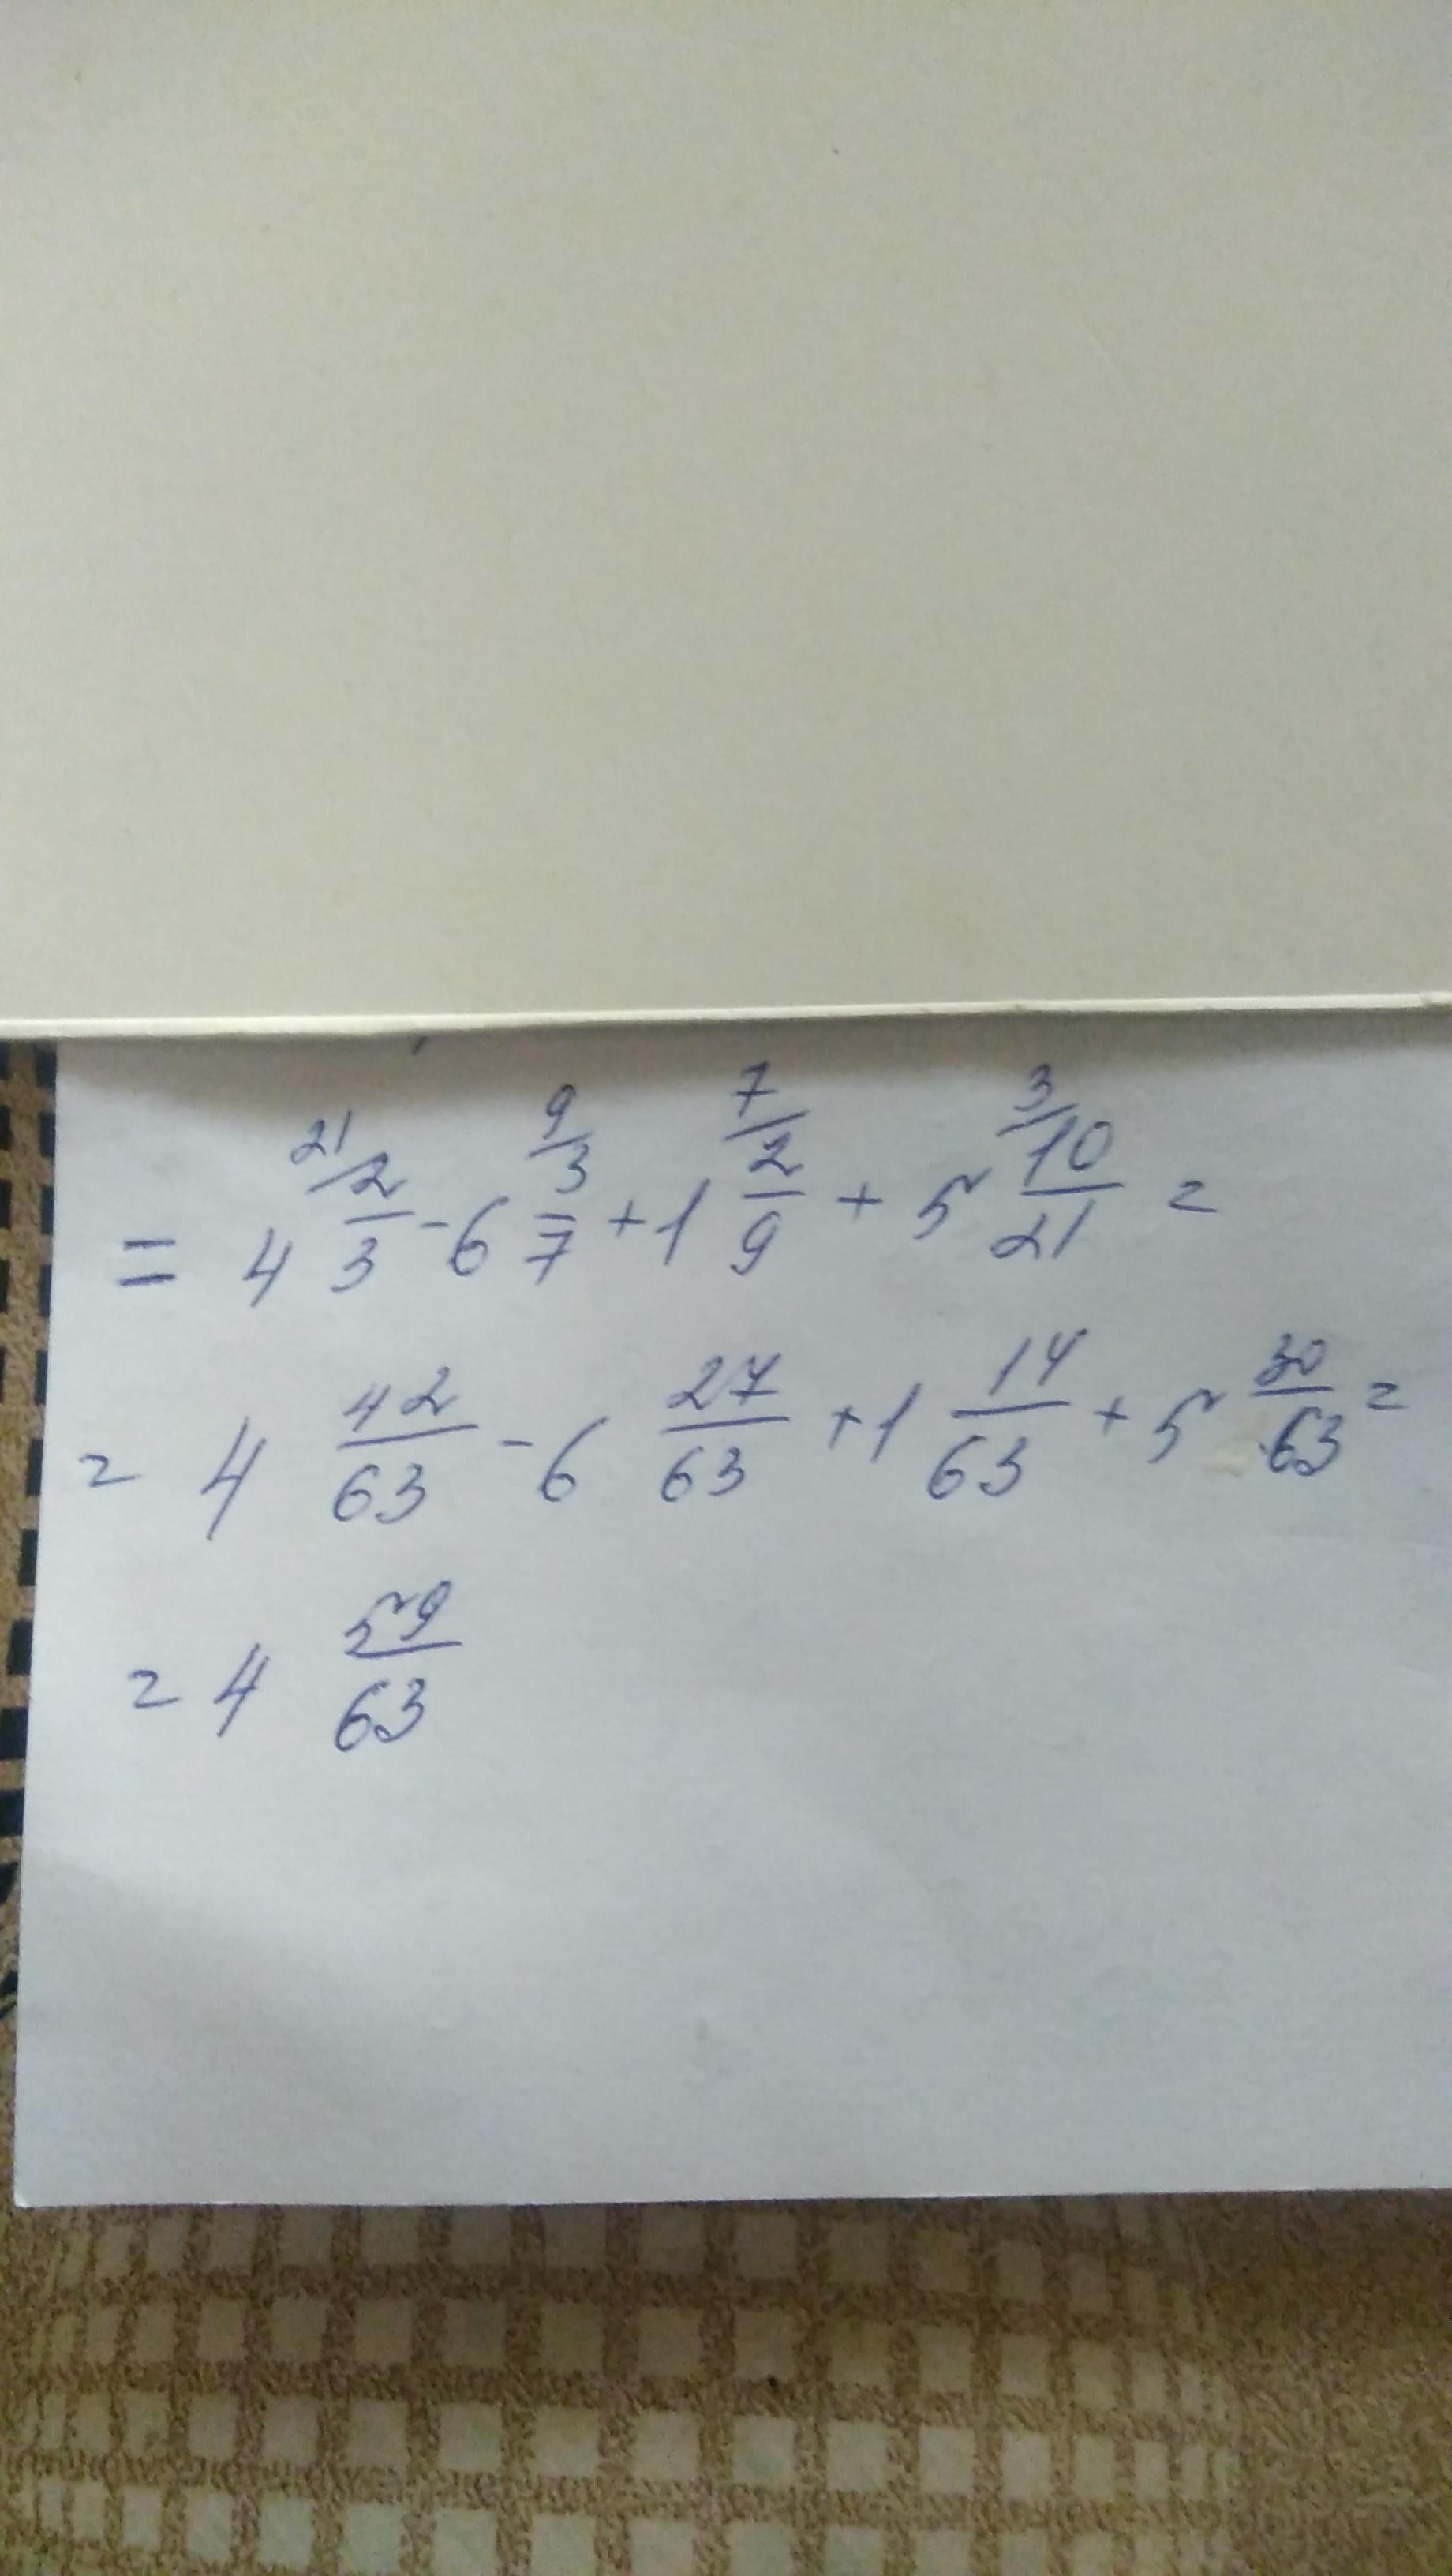 = 4 21/2/3 - 6 9/3/7 + 1 7/2/9 + 5 3/10/21 =
= 4 42/63 - 6 27/63 + 1 14/63 + 5 30/63 =
= 4 59/63